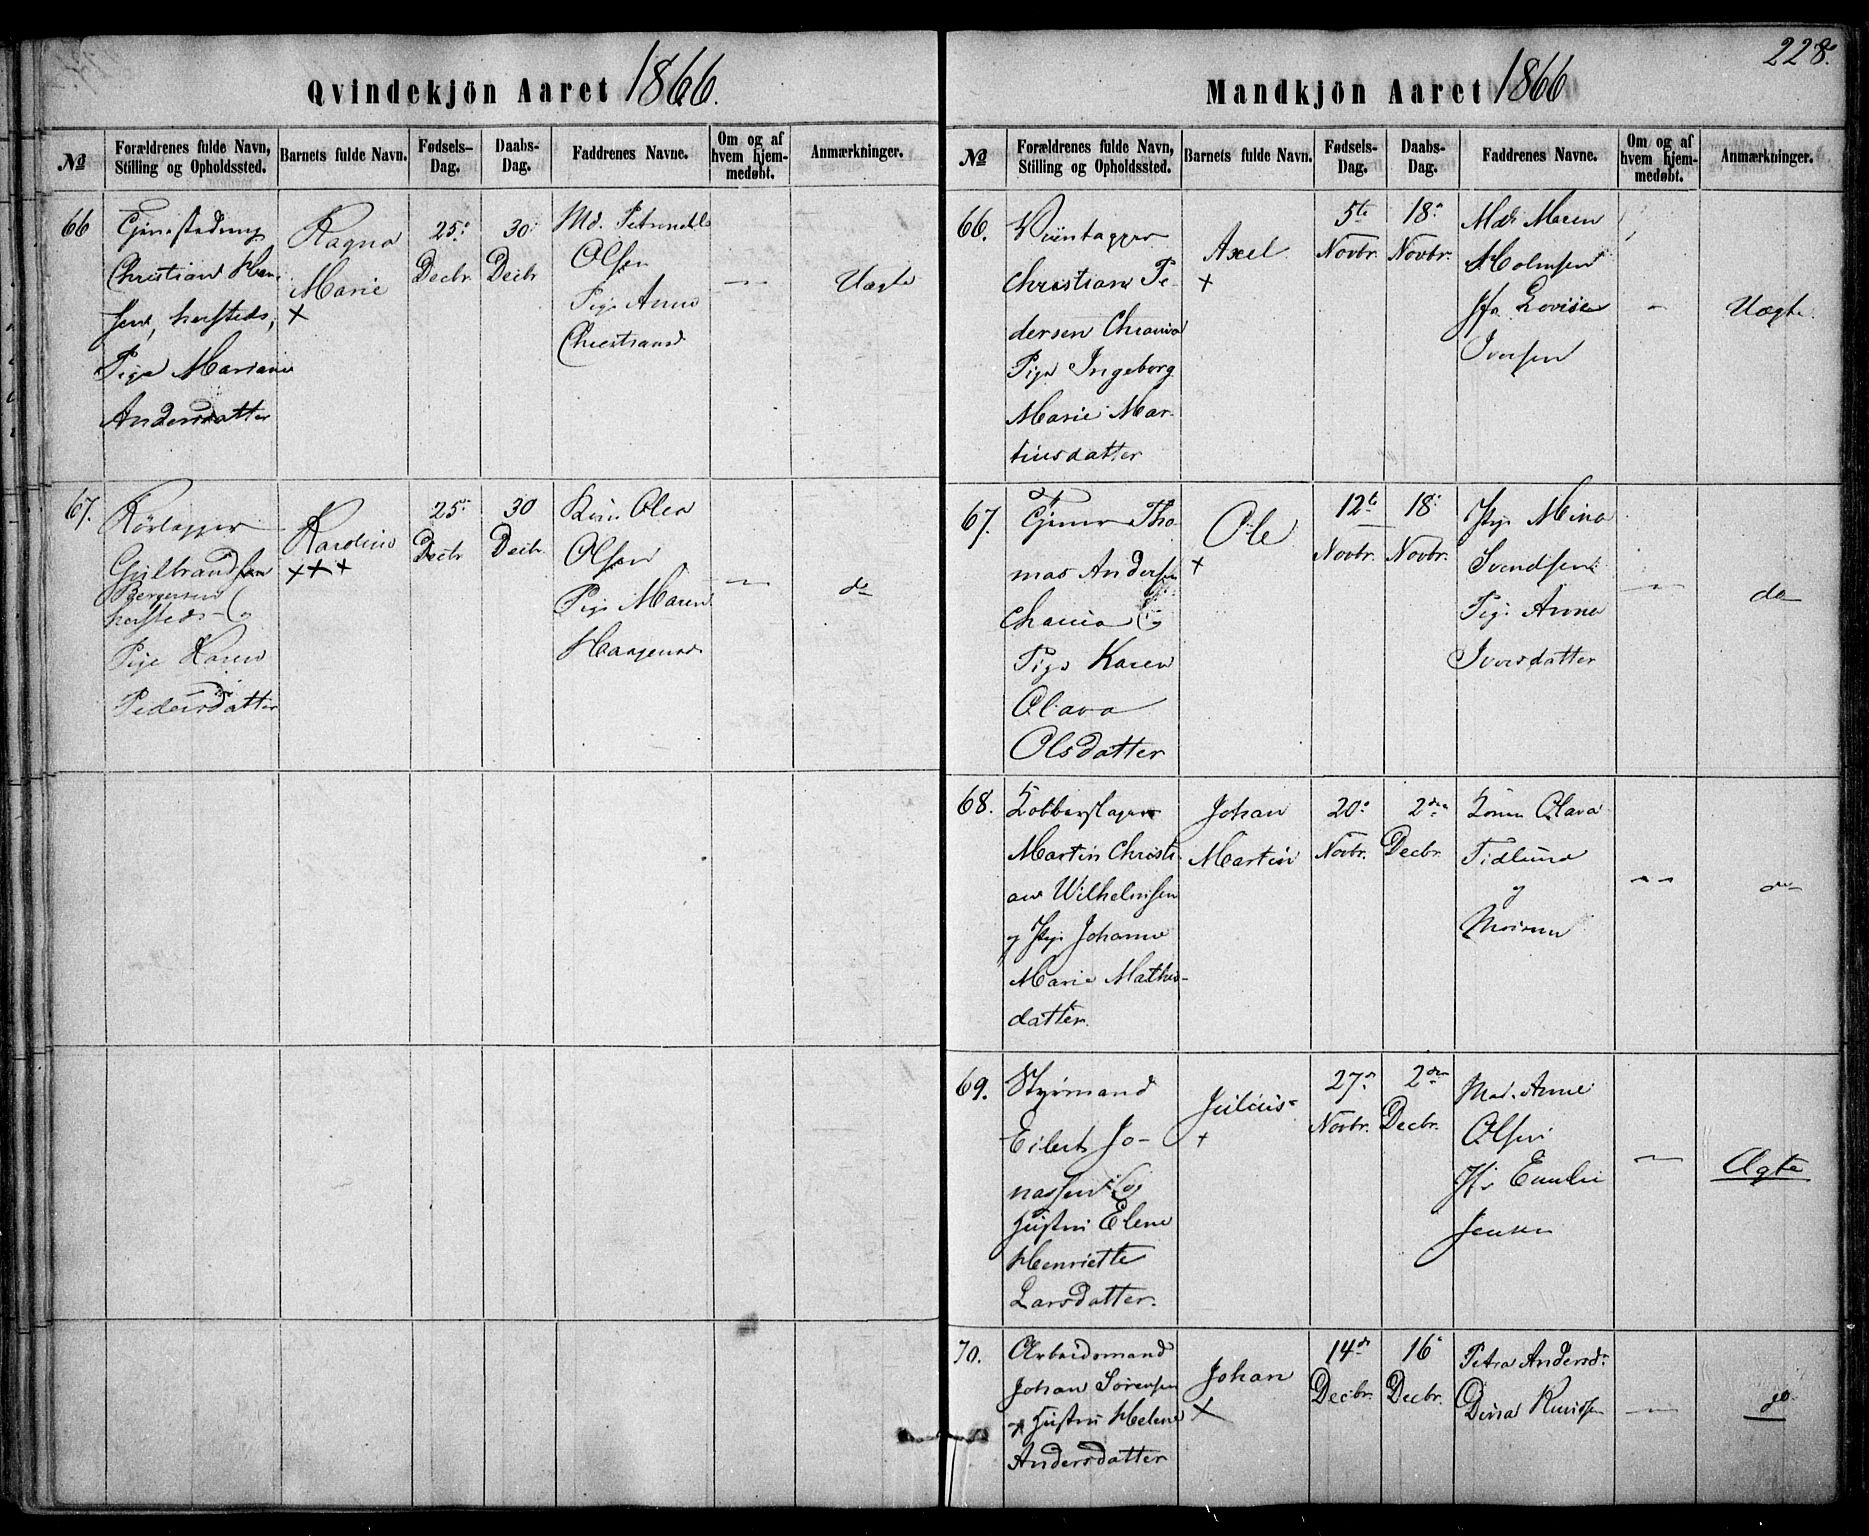 228.
Qvindekjön Aaret 1866.
No
Forældrenes fulde Navn,
Stilling og Opholdssted.
Barnets fulde Navn.
Fødsels-
Dag.
Daabs-
Dag.
Faddrenes Navne.
Om og af
hvem hjem-
medøbt.
Anmærkninger.
66
Christian Han-
sen, hersteds,
Pige Mariane
Andersdatter
Ragna
Marie
+
25
Decbr
30
Decbr
Md. Petronelle
Olsen
Pige Anne
Christians
—
Uægte
67.
Gulbrandsen
Bergersen
hersteds og
Pige Karen
Pedersdatter
Karoline
+++
25
Decbr
30
Decbr.
Olea
Olsen
Pige Maren
Haagens
—
do
Mandkjön Aaret 1866
No
Forældrenes fulde Navn,
Stilling og Opholdssted.
Barnets fulde Navn.
Fødsels-
Dag.
Daabs-
Dag.
Faddrenes Navne.
Om og af
hvem hjem-
medøbt.
Anmærkninger.
66.
Viintapper
Christian Pe-
dersen Chrania
Pige Ingeborg
Marie Mar-
tinsdatter
Axel
+
5te
Novbr.
18
Novbr.
Md. Maren
Holmsen
Jfr Lovise
Iversen
—
Uægte.
67.
Tjener Tho
mas Andersen
Chania og
Pige Karen
Olava
Olsdatter
Ole
+
12te
Novbr.
18
Novbr.
Mina
Svendsen
Pige Anna
Iversdatter
—
do
68.
Kobberslager
Martin Christi-
an Wilhelmsen
og Johanne
Marie Mathis-
datter.
Johan
Martin
20
Novbr.
2den
Decbr.
Konen Olava
Tidlund
og
Moren
— —
do
69.
Styrmand
Eilert Jo-
nassen og
Hustru Elene
Henriette
Larsdatter.
Julius
+
27
Novbr.
2den
Decbr.
Mad. Anne
Olsen
Jfr Emilie
Jensen
—
Ægte
70.
Arbeidsmand
Johan Sørensen
& Hustru Helene
Andersdatter
Johan
+
14de
Decbr.
16
Decbr.
Petra Andersd.
Dina Knudsen
—
do.